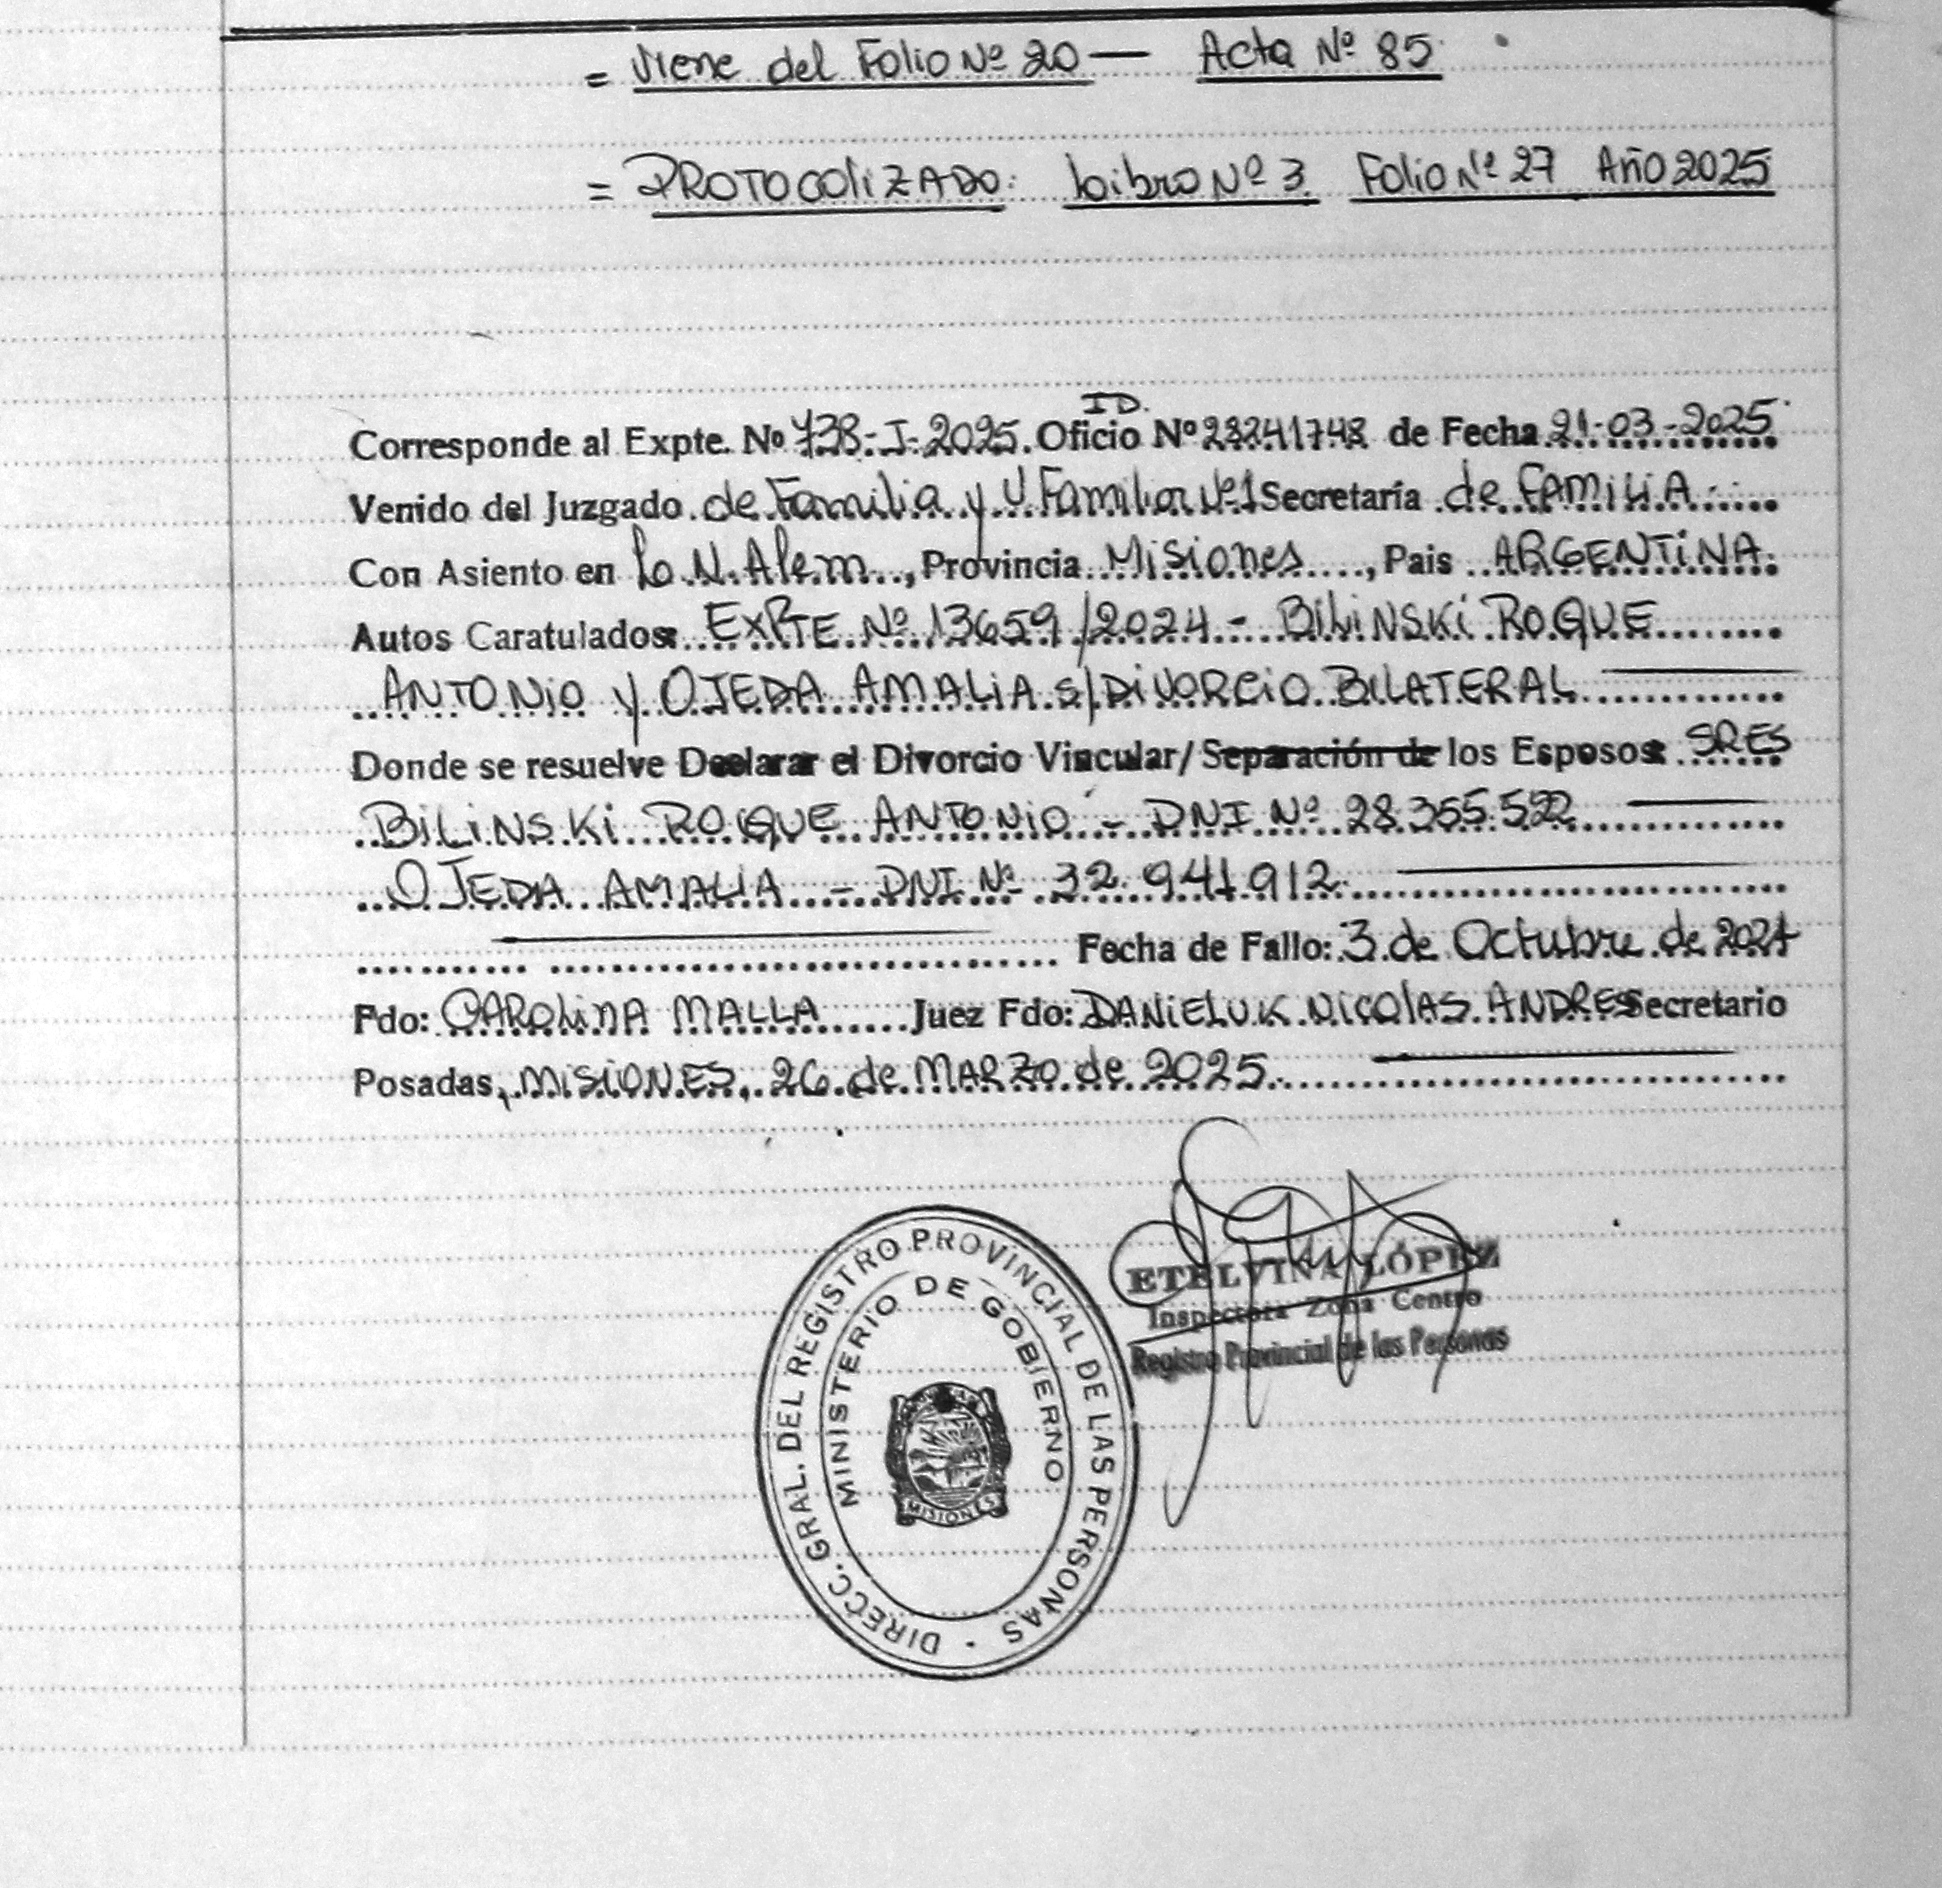 = Viene del Folio Nº 20 — Acta Nº 85
= PROTOCOLIZADO: Libro Nº 3 Folio Nº 27 Año 2025
ID.
Corresponde al Expte. Nº 738-I-2025. Oficio Nº 23241748 de Fecha 21-03-2025
Venido del Juzgado de Familia y V Familiar Nº 1 Secretaría de FAMILIA
Con Asiento en L. N. Alem, Provincia Misiones, Pais ARGENTINA.
Autos Caratulados: EXPTE Nº 13659/2024 - BILINSKI ROQUE
ANTONIO y OJEDA AMALIA s/DIVORCIO BILATERAL
Donde se resuelve Declarar el Divorcio Vincular/Separación de los Esposos: SRES
BILINSKI ROQUE ANTONIO - DNI Nº 28.355.522
OJEDA AMALIA - DNI Nº 32.941.912.
Fecha de Fallo: 3 de Octubre de 2024
Fdo: CAROLINA MALLA Juez Fdo: DANIELUK NICOLAS ANDRES Secretario
Posadas, MISIONES, 26 de MARZO de 2025.
ETELVINA LÓPEZ
Inspectora Zona Centro
Registro Provincial de las Personas
DIRECC. GRAL. DEL REGISTRO PROVINCIAL DE LAS PERSONAS
MINISTERIO DE GOBIERNO
MISIONES